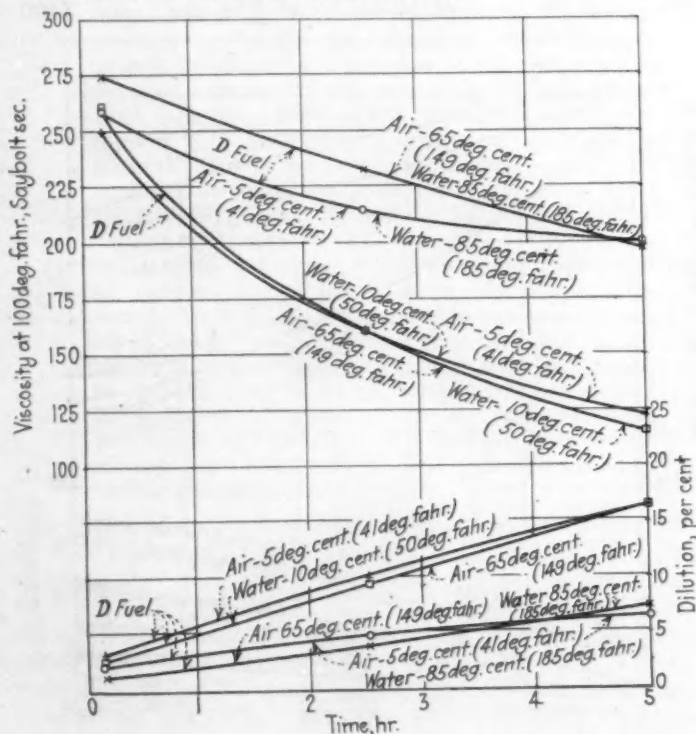 300
275
250
225
200
175
150
125
100
Viscosity at 100 deg. fahr., Saybolt sec.
D Fuel
Air-65 deg. cent.
(149 deg. fahr.)
Water-85 deg. cent. (185 deg. fahr.)
Air-5 deg. cent.
(41 deg. fahr.)
Water-85 deg. cent.
(185 deg. fahr.)
D Fuel
Water-10 deg. cent.
(50 deg. fahr.)
Air-65 deg. cent.
(149 deg. fahr.)
Air-5 deg. cent.
(41 deg. fahr.)
Water-10 deg. cent.
(50 deg. fahr.)
25
20
15
10
5
0
Dilution, per cent
Air-5 deg. cent. (41 deg. fahr.)
Water-10 deg. cent. (50 deg. fahr.)
Air-65 deg. cent.
(149 deg. fahr.)
D Fuel
Air 65 deg. cent. (149 deg fahr)
Water 85 deg. cent.
(185 deg. fahr.)
Air-5 deg. cent. (41 deg. fahr.)
Water-85 deg. cent. (185 deg. fahr.)
0
1
2
3
4
5
Time, hr.